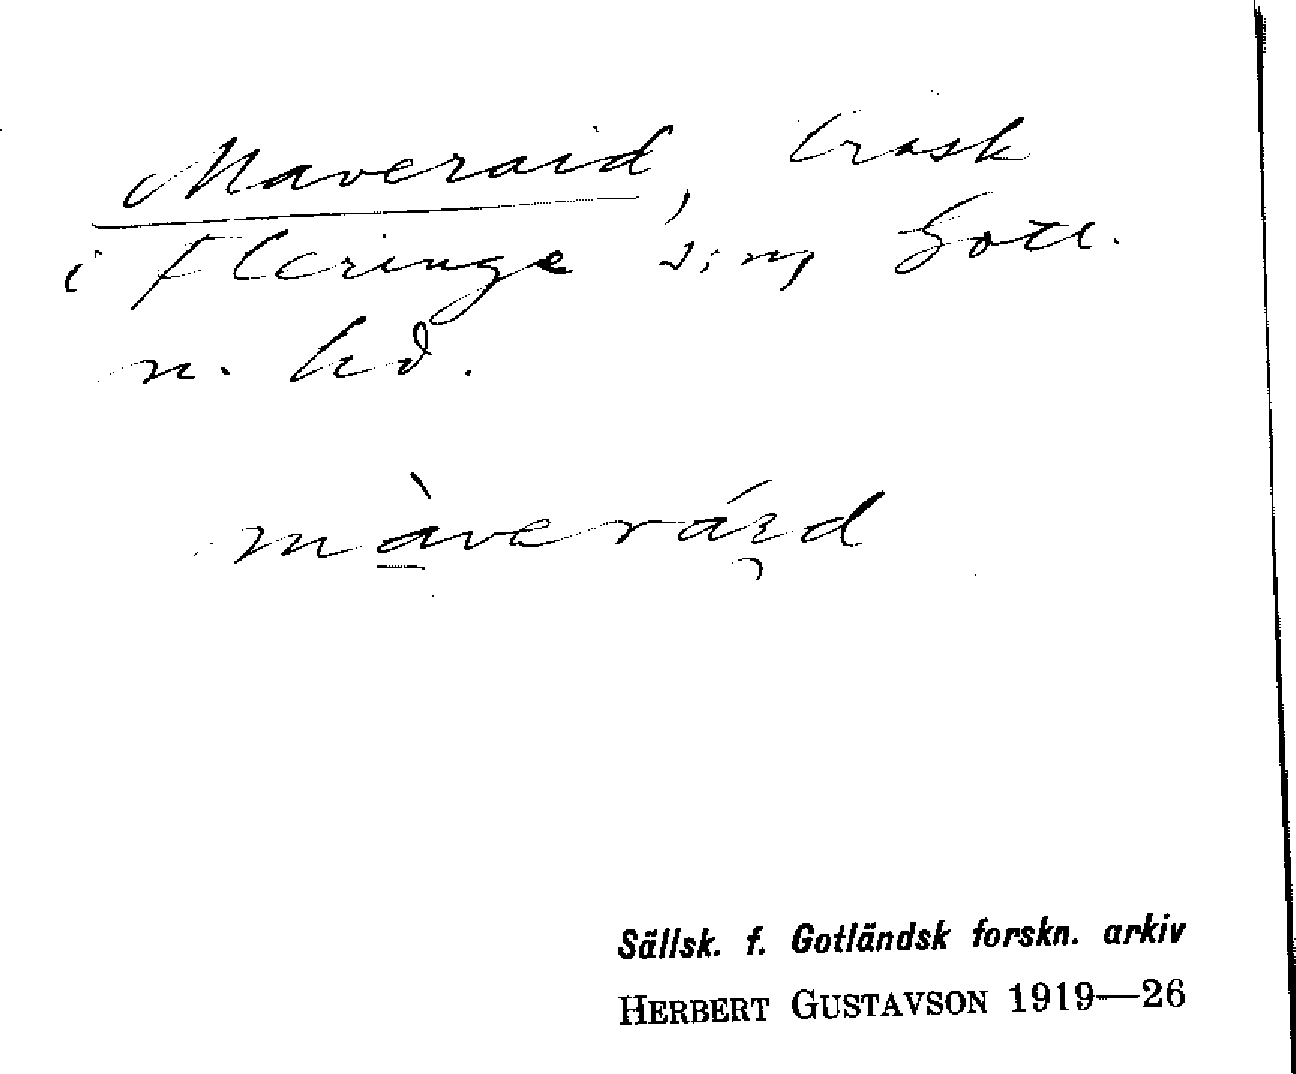 Maveraid, träsk
i Fleringe s:n, Gotl.
n. hd.
màveráɪd
Sällsk. f. Gotländsk forskn. arkiv
HERBERT GUSTAVSON 1919—26